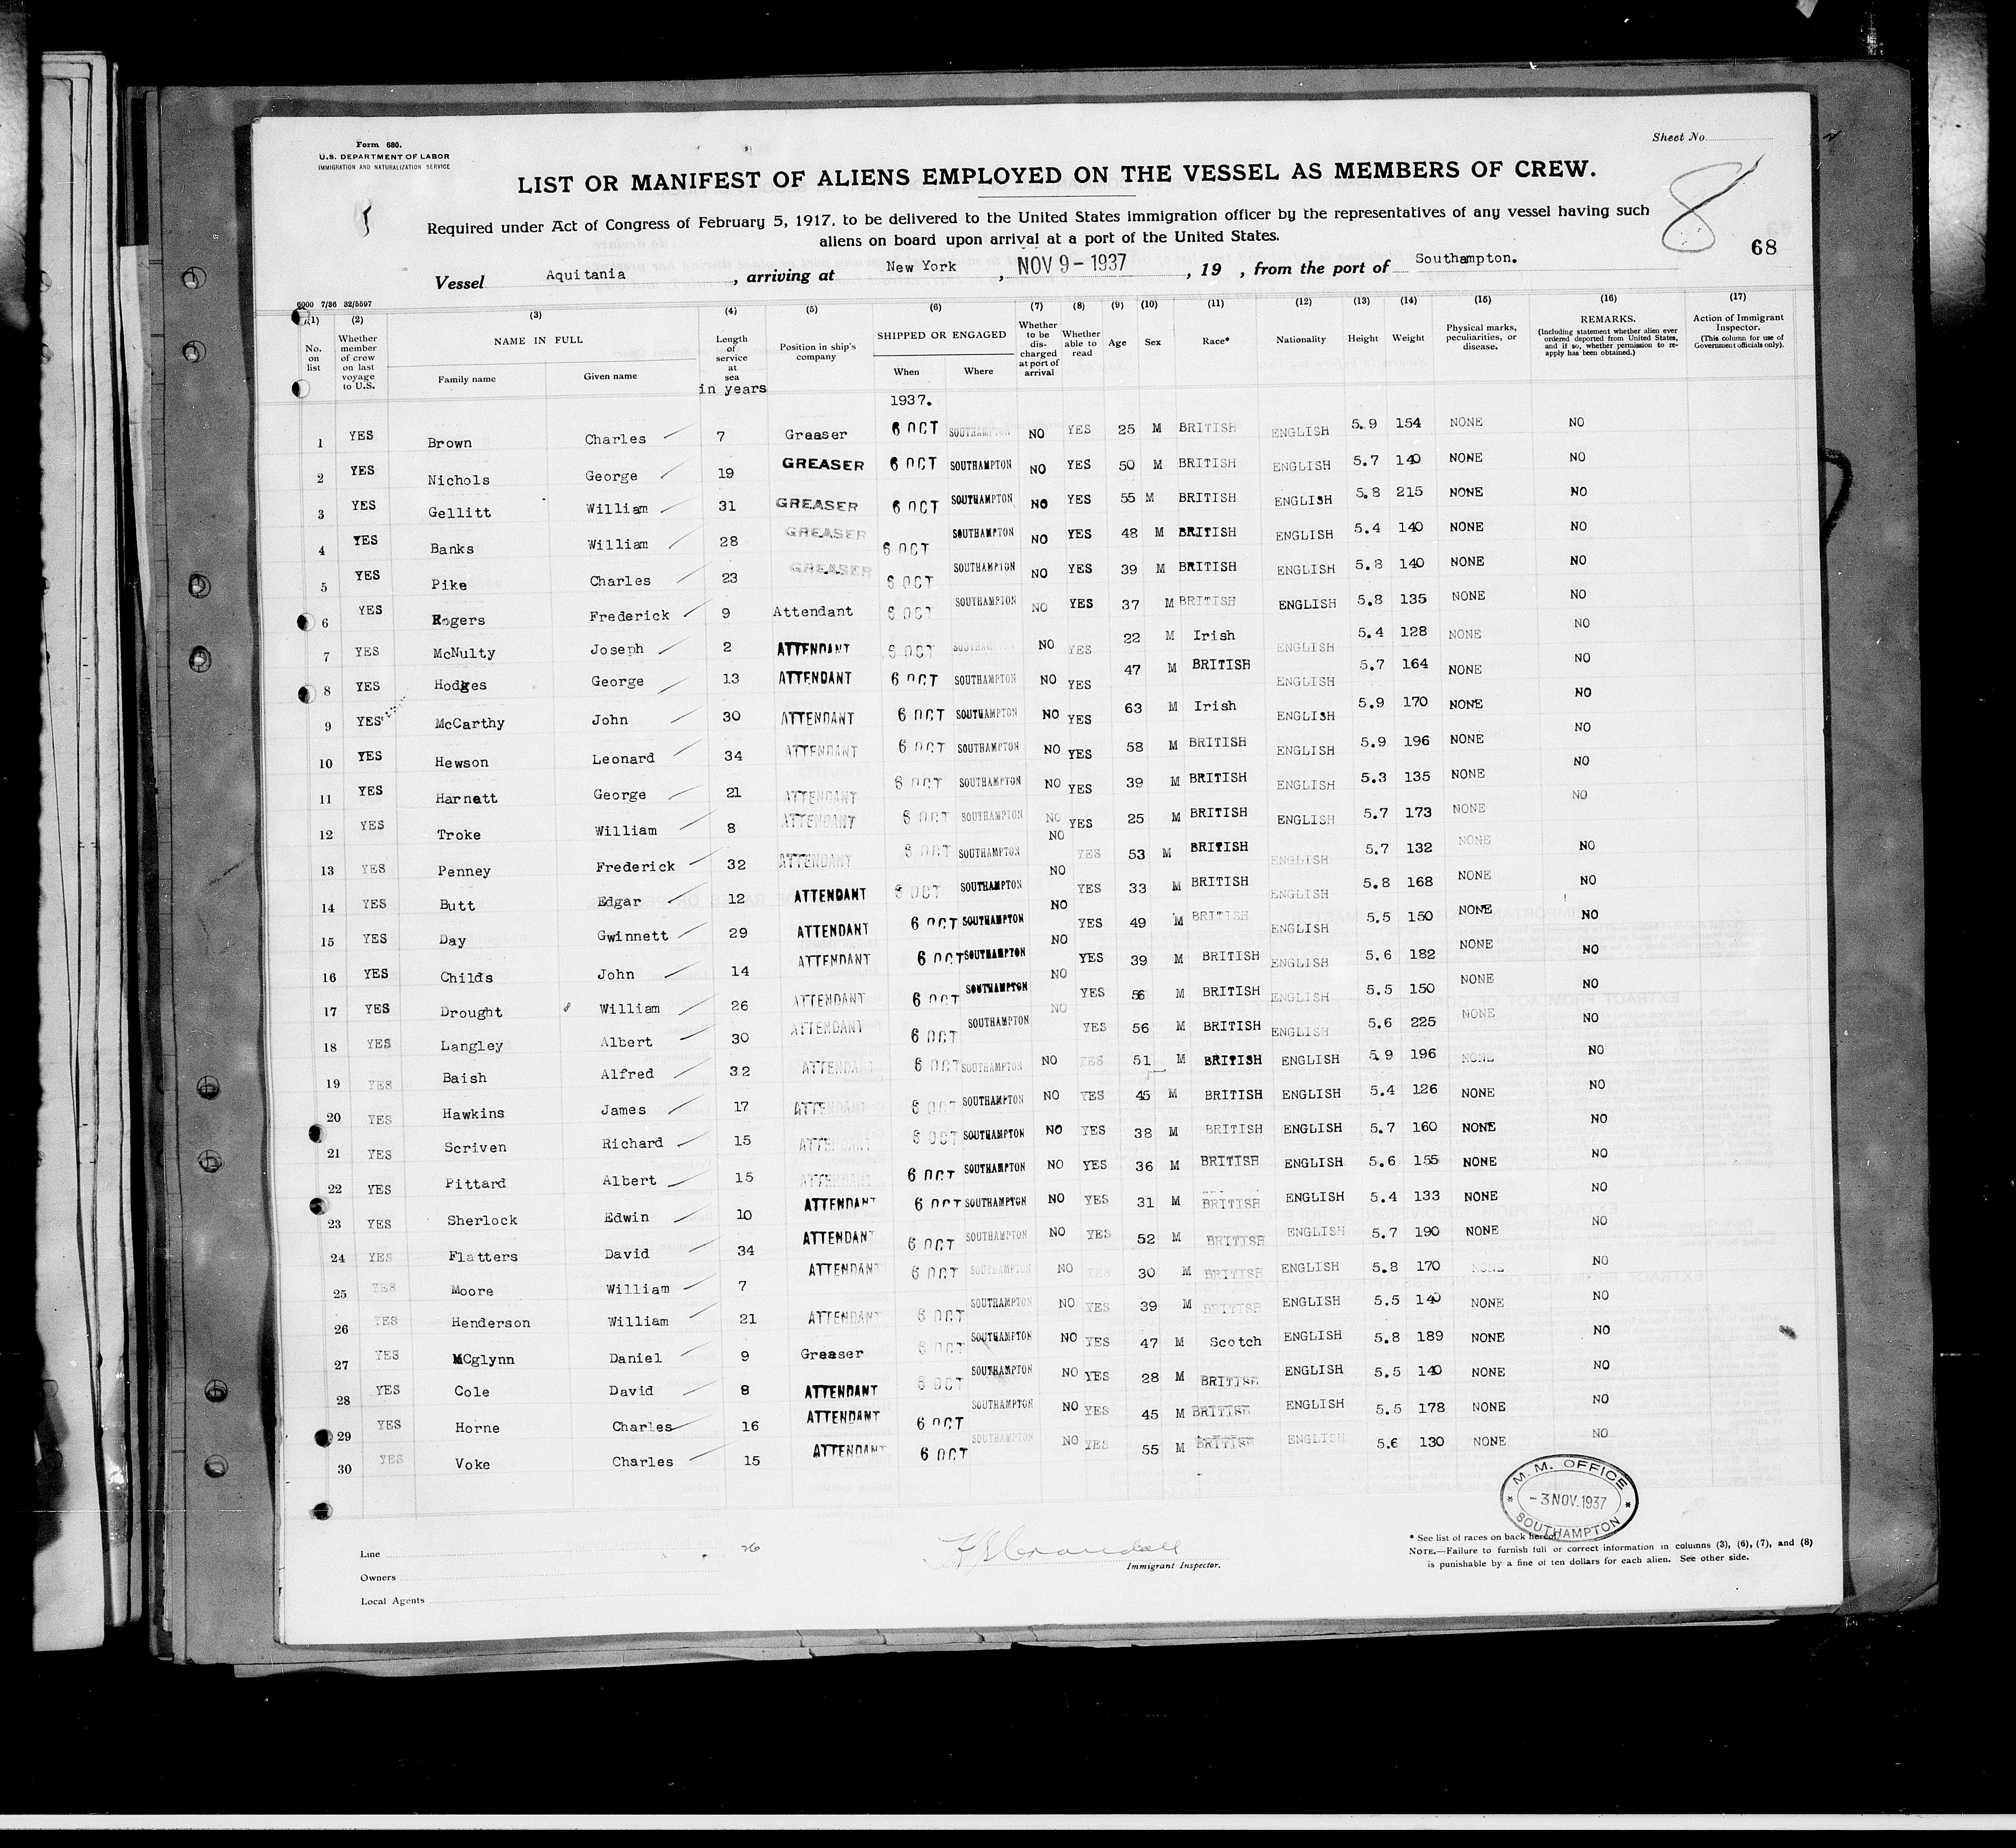 Form 680.
U.S. DEPARTMENT OF LABOR
IMMIGRATION AND NATURALIZATION SERVICE
Sheet No.
LIST OR MANIFEST OF ALIENS EMPLOYED ON THE VESSEL AS MEMBERS OF CREW.
8
Required under Act of Congress of February 5, 1917, to be delivered to the United States immigration officer by the representatives of any vessel having such
aliens on board upon arrival at a port of the United States.
68
Vessel Aquitania, arriving at New York, NOV 9 - 1937, 19 , from the port of Southampton.
6000 7/36 32/5597
(1) (2) (3) (4) (5) (6) (7) (8) (9) (10) (11) (12) (13) (14) (15) (16) (17)
No. on list
Whether member of crew on last voyage to U.S.
NAME IN FULL
Family name Given name
Length of service at sea in years
Position in ship's company
SHIPPED OR ENGAGED
When Where
Whether to be discharged at port of arrival
Whether able to read
Age Sex Race* Nationality Height Weight
Physical marks, peculiarities, or disease.
REMARKS.
(Including statement whether alien ever ordered deported from United States, and if so, whether permission to reapply has been obtained.)
Action of Immigrant Inspector.
(This column for use of Government officials only).
1937.
1 YES Brown Charles 7 Greaser 6 OCT SOUTHAMPTON NO YES 25 M BRITISH ENGLISH 5.9 154 NONE NO
2 YES Nichols George 19 GREASER 6 OCT SOUTHAMPTON NO YES 50 M BRITISH ENGLISH 5.7 140 NONE NO
3 YES Gellitt William 31 GREASER 6 OCT SOUTHAMPTON NO YES 55 M BRITISH ENGLISH 5.8 215 NONE NO
4 YES Banks William 28 GREASER 6 OCT SOUTHAMPTON NO YES 48 M BRITISH ENGLISH 5.4 140 NONE NO
5 YES Pike Charles 23 GREASER 6 OCT SOUTHAMPTON NO YES 39 M BRITISH ENGLISH 5.8 140 NONE NO
6 YES Rogers Frederick 9 Attendant 6 OCT SOUTHAMPTON NO YES 37 M BRITISH ENGLISH 5.8 135 NONE NO
7 YES McNulty Joseph 2 ATTENDANT 6 OCT SOUTHAMPTON NO YES 22 M Irish ENGLISH 5.4 128 NONE NO
8 YES Hodges George 13 ATTENDANT 6 OCT SOUTHAMPTON NO YES 47 M BRITISH ENGLISH 5.7 164 NONE NO
9 YES McCarthy John 30 ATTENDANT 6 OCT SOUTHAMPTON NO YES 63 M Irish ENGLISH 5.9 170 NONE NO
10 YES Hewson Leonard 34 ATTENDANT 6 OCT SOUTHAMPTON NO YES 58 M BRITISH ENGLISH 5.9 196 NONE NO
11 YES Harnett George 21 ATTENDANT 6 OCT SOUTHAMPTON NO YES 39 M BRITISH ENGLISH 5.3 135 NONE NO
12 YES Troke William 8 ATTENDANT 6 OCT SOUTHAMPTON NO YES 25 M BRITISH ENGLISH 5.7 173 NONE NO
13 YES Penney Frederick 32 ATTENDANT 6 OCT SOUTHAMPTON NO YES 53 M BRITISH ENGLISH 5.7 132 NONE NO
14 YES Butt Edgar 12 ATTENDANT 6 OCT SOUTHAMPTON NO YES 33 M BRITISH ENGLISH 5.8 168 NONE NO
15 YES Day Gwinnett 29 ATTENDANT 6 OCT SOUTHAMPTON NO YES 49 M BRITISH ENGLISH 5.5 150 NONE NO
16 YES Childs John 14 ATTENDANT 6 OCT SOUTHAMPTON NO YES 39 M BRITISH ENGLISH 5.6 182 NONE NO
17 YES Drought William 26 ATTENDANT 6 OCT SOUTHAMPTON NO YES 56 M BRITISH ENGLISH 5.5 150 NONE NO
18 YES Langley Albert 30 ATTENDANT 6 OCT SOUTHAMPTON NO YES 56 M BRITISH ENGLISH 5.6 225 NONE NO
19 YES Baish Alfred 32 ATTENDANT 6 OCT SOUTHAMPTON NO YES 51 M BRITISH ENGLISH 5.9 196 NONE NO
20 YES Hawkins James 17 ATTENDANT 6 OCT SOUTHAMPTON NO YES 45 M BRITISH ENGLISH 5.4 126 NONE NO
21 YES Scriven Richard 15 ATTENDANT 6 OCT SOUTHAMPTON NO YES 38 M BRITISH ENGLISH 5.7 160 NONE NO
22 YES Pittard Albert 15 ATTENDANT 6 OCT SOUTHAMPTON NO YES 36 M BRITISH ENGLISH 5.6 155 NONE NO
23 YES Sherlock Edwin 10 ATTENDANT 6 OCT SOUTHAMPTON NO YES 31 M BRITISH ENGLISH 5.4 133 NONE NO
24 YES Flatters David 34 ATTENDANT 6 OCT SOUTHAMPTON NO YES 52 M BRITISH ENGLISH 5.7 190 NONE NO
25 YES Moore William 7 ATTENDANT 6 OCT SOUTHAMPTON NO YES 30 M BRITISH ENGLISH 5.8 170 NONE NO
26 YES Henderson William 21 ATTENDANT 6 OCT SOUTHAMPTON NO YES 39 M BRITISH ENGLISH 5.5 140 NONE NO
27 YES MCglynn Daniel 9 Greaser 6 OCT SOUTHAMPTON NO YES 47 M Scotch ENGLISH 5.8 189 NONE NO
28 YES Cole David 8 ATTENDANT 6 OCT SOUTHAMPTON NO YES 28 M BRITISH ENGLISH 5.5 140 NONE NO
29 YES Horne Charles 16 ATTENDANT 6 OCT SOUTHAMPTON NO YES 45 M BRITISH ENGLISH 5.5 178 NONE NO
30 YES Voke Charles 15 ATTENDANT 6 OCT SOUTHAMPTON NO YES 55 M BRITISH ENGLISH 5.6 130 NONE NO
M. M. OFFICE
- 3 NOV. 1937
SOUTHAMPTON
Line
Owners
Local Agents
26
Immigrant Inspector.
* See list of races on back hereof.
NOTE.—Failure to furnish full or correct information in columns (3), (6), (7), and (8)
is punishable by a fine of ten dollars for each alien. See other side.